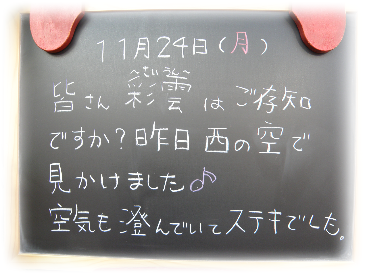 11月24日(月)
皆さん 彩雲 はご存知
ですか?昨日 西の空で
見かけました♪
空気も澄んでいてステキでした。